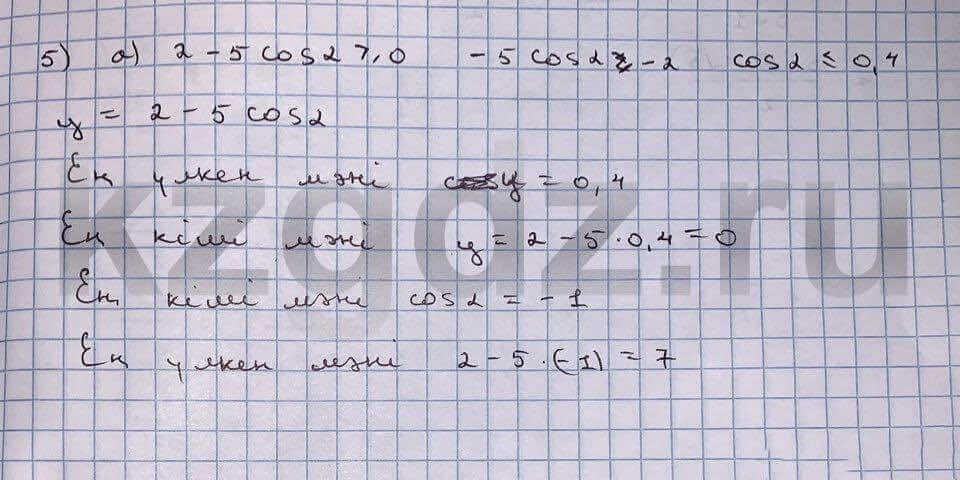 5) a) 2 - 5 cosα ≥ 0 - 5 cosα ≥ -2 cosα ≤ 0,4
y = 2 - 5 cosα
Ең үлкен мәні y = 0,4
Ең кіші мәні y = 2 - 5·0,4 = 0
Ең кіші мәні cosα = -1
Ең үлкен мәні 2 - 5·(-1) = 7
kzgdz.ru